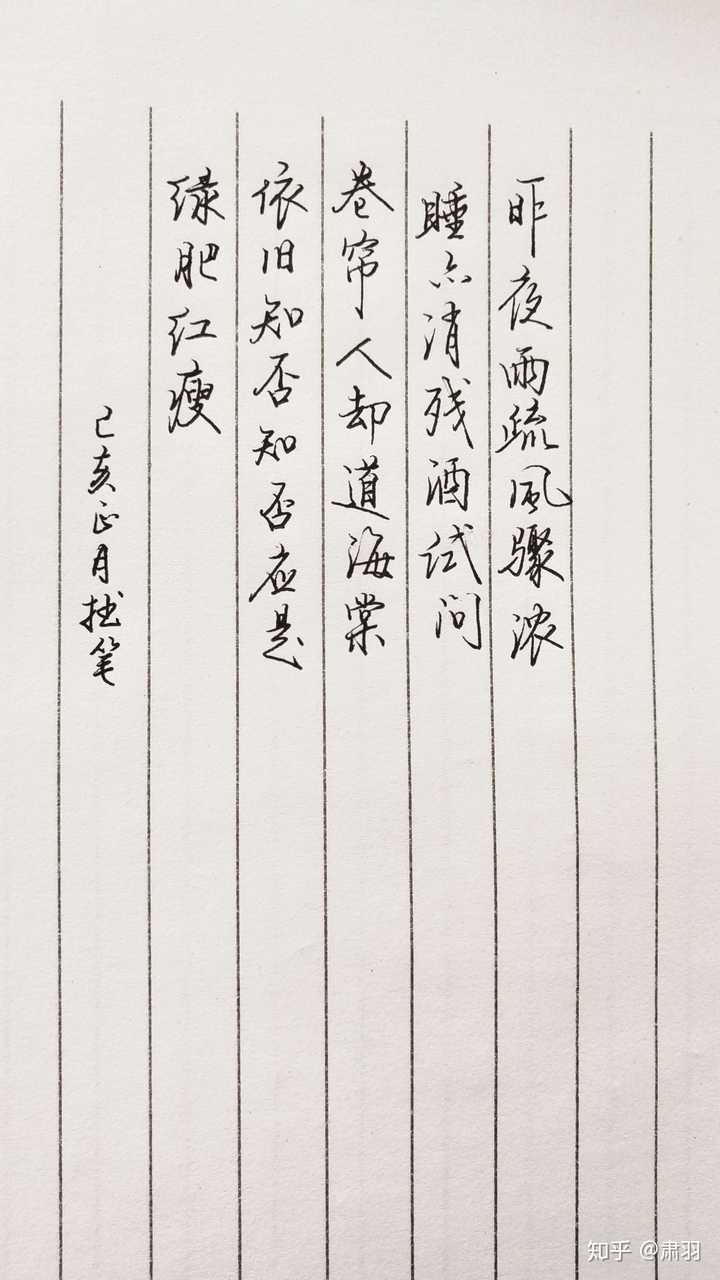 昨夜雨疏风骤浓
睡亦消残酒试问
卷帘人却道海棠
依旧知否知否应是
绿肥红瘦
己亥正月拙笔
知乎 @肃羽